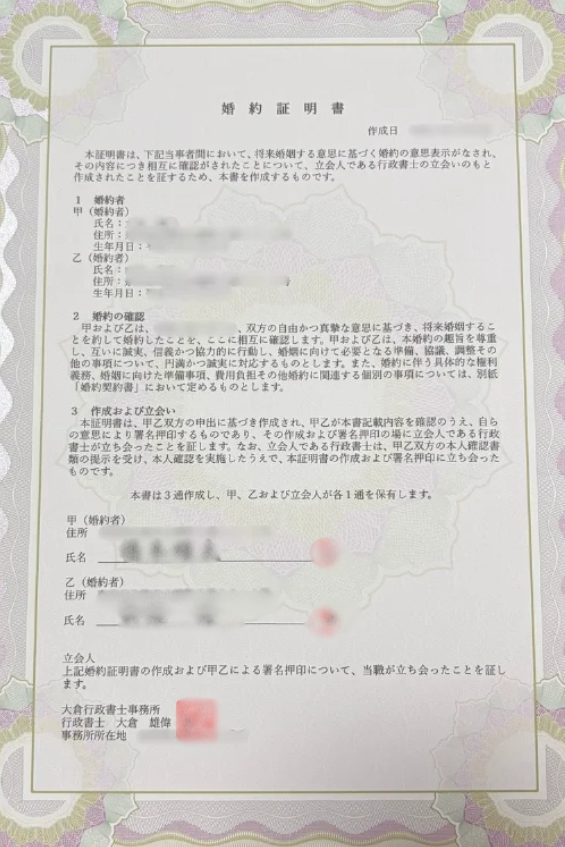 婚約証明書
作成日
本証明書は、下記当事者間において、将来婚姻する意思に基づく婚約の意思表示がなされ、
その内容につき相互に確認がされたことについて、立会人である行政書士の立会いのもと
作成されたことを証するため、本書を作成するものです。
1 婚約者
甲（婚約者）
氏名：
住所：
生年月日：
乙（婚約者）
氏名：
住所： 号
生年月日：
2 婚約の確認
甲および乙は、 、双方の自由かつ真摯な意思に基づき、将来婚姻するこ
とを約して婚約したことを、ここに相互に確認します。甲および乙は、本婚約の趣旨を尊重
し、互いに誠実、信義かつ協力的に行動し、婚姻に向けて必要となる準備、協議、調整その
他の事項について、円満かつ誠実に対応するものとします。また、婚約に伴う具体的な権利
義務、婚姻に向けた準備事項、費用負担その他婚約に関連する個別の事項については、別紙
「婚約契約書」において定めるものとします。
3 作成および立会い
本証明書は、甲乙双方の申出に基づき作成され、甲乙が本書記載内容を確認のうえ、自ら
の意思により署名押印するものであり、その作成および署名押印の場に立会人である行政
書士が立ち会ったことを証します。なお、立会人である行政書士は、甲乙双方の本人確認書
類の提示を受け、本人確認を実施したうえで、本証明書の作成および署名押印に立ち会った
ものです。
本書は3通作成し、甲、乙および立会人が各1通を保有します。
甲（婚約者）
住所
氏名
乙（婚約者）
住所
氏名
立会人
上記婚約証明書の作成および甲乙による署名押印について、当職が立ち会ったことを証し
ます。
大倉行政書士事務所
行政書士 大倉 雄偉
事務所所在地